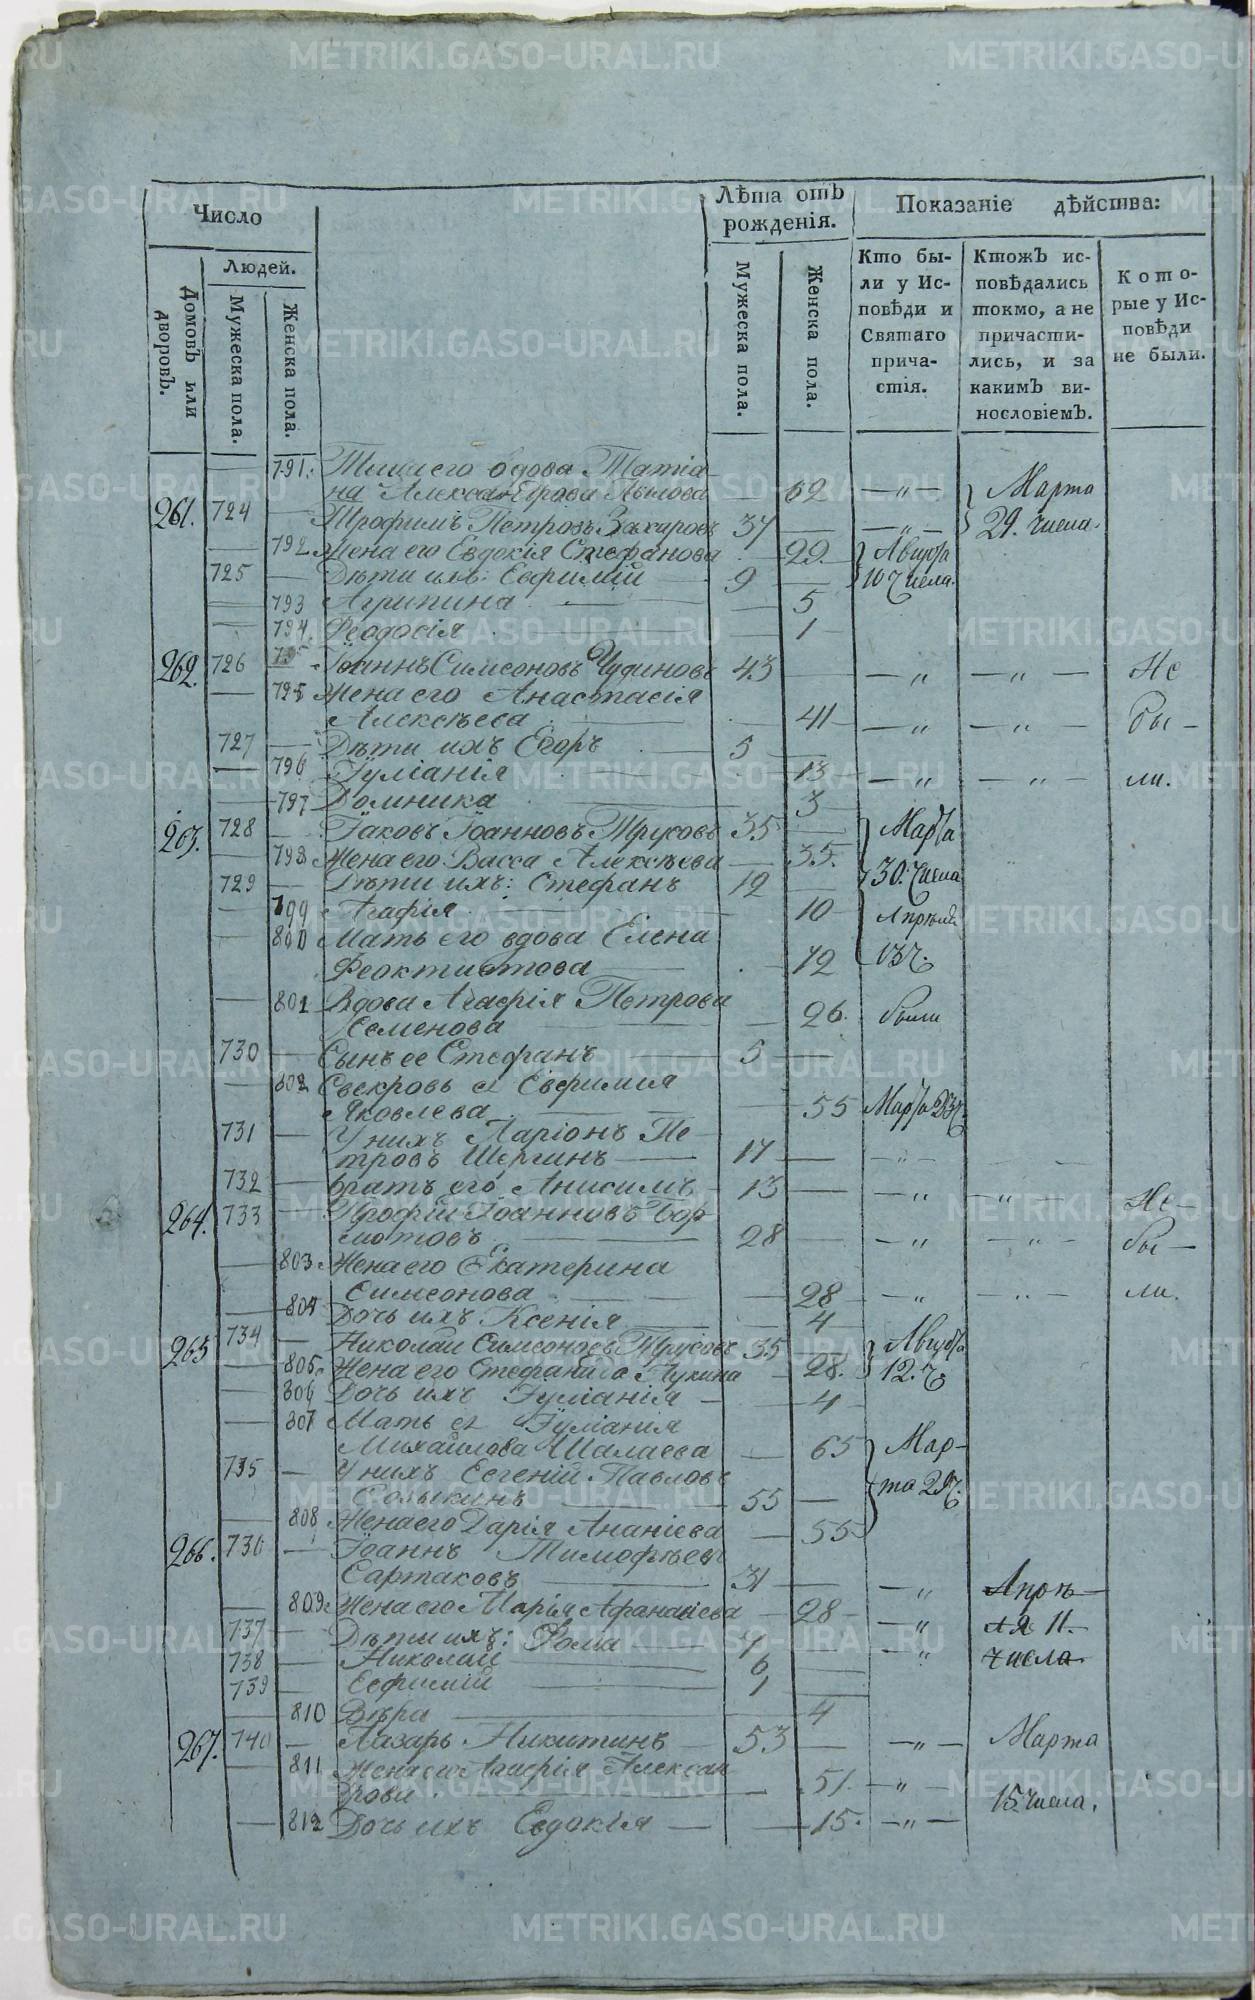 Число
Лѣта отъ рожденія.
Показаніе дѣйства:
Домовъ или дворовъ.
Людей.
Мужеска пола.
Женска пола.
Мужеска пола.
Женска пола.
Кто бы-
ли у Ис-
повѣди и
Святаго
прича-
стія.
Ктожъ ис-
повѣдались
токмо, а не
причасти-
лись, и за
какимъ ви-
нословіемъ.
Кото-
рые у Ис-
повѣди
не были.
791. вдова Татіа
на Александрова — 62 — „ — Марта
261. 724 — Трофимъ Петровъ Захаровъ 37 — — „ — 29. числа.
— 792 Жена его Евдокія Стефанова — 29. Августа
725 — Дѣти ихъ: Евфимій — 9 — 10 числа.
— 793 Агрипина — — 5
— 794. Феодосія — — 1
262. 726 Іоаннъ Симеоновъ Чудиновъ 43 — — „ — „ — Не
— 795 Жена его Анастасія
Алексѣева — 41 — „ — „ — бы —
727 — Дѣти ихъ Егоръ — 5 —
— 796 Іуліанія — — 13 — „ — „ — ли.
— 797 Домника — — 3
263. 728 — Іаковъ Іоанновъ Трусовъ 35 — Марта
— 798 Жена его Васса Алексѣева — 35. 30. числа
729 — Дѣти ихъ: Стефанъ 12 —
— 799 Агафія — — 10 Апрѣля
— 800 Мать его вдова Елена
Феоктистова — — 72
— 801 Вдова Агафія Петрова
Семенова — — 26. были
730 — Сынъ ее Стефанъ — 5 —
— 802 Свекровь ея Евфимія
Яковлева — — 55 Марта
731 — У нихъ Ларіонъ Пе-
тровъ Шергинъ — 17 — „
732 — братъ его Анисимъ — 13 — „ „ Не —
264. 733 — Іоанновъ Бор-
мотовъ — 28 — „ — „ — бы —
— 803 Жена его Екатерина
Симеонова — — 28 — „ — „ — ли.
— 804 Дочь ихъ Ксенія — — 4
265 734 — Николай Симеоновъ Трусовъ 35 — Августа
— 805. Жена его Стефанида Лукина — 28. 12. ч.
— 806 Дочь ихъ Іуліанія — — 4
— 807 Мать ея Іуліанія
Михайлова Шалаева — 65 Мар-
735 — У нихъ Евгеній Павловъ та 29 ч.
— 55 —
808 Жена его Дарія Ананіева — 55
266. 736 — Іоаннъ Тимофѣевъ
Сартаковъ — 31 — „ Апрѣ-
— 809 Жена его Марія Афанасіева — 28 — „ — ля 11.
737 — Дѣти ихъ: Фома — 9 — — „ числа
738 — Николай — 6 —
739 — Евфимій — 1 —
— 810 Вѣра — 4
267. 740 — Лазарь Никитинъ — 53 — — „ — Марта
— 811 Жена его Агафія Алексан
дрова. — — 51. — „ — 15. числа.
— 812 Дочь ихъ Евдокія — — 15. — „ —
METRIKI.GASO-URAL.RU